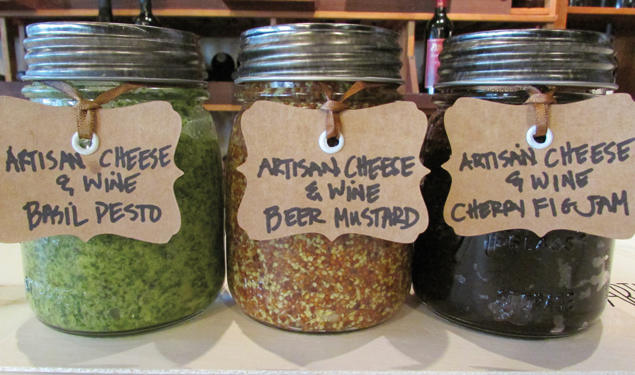 ARTISAN CHEESE
& WINE
BASIL PESTO
ARTISAN CHEECE
& WINE
BEER MUSTARD
ARTISAN CHEESE
& WINE
CHERRY FIG JAM